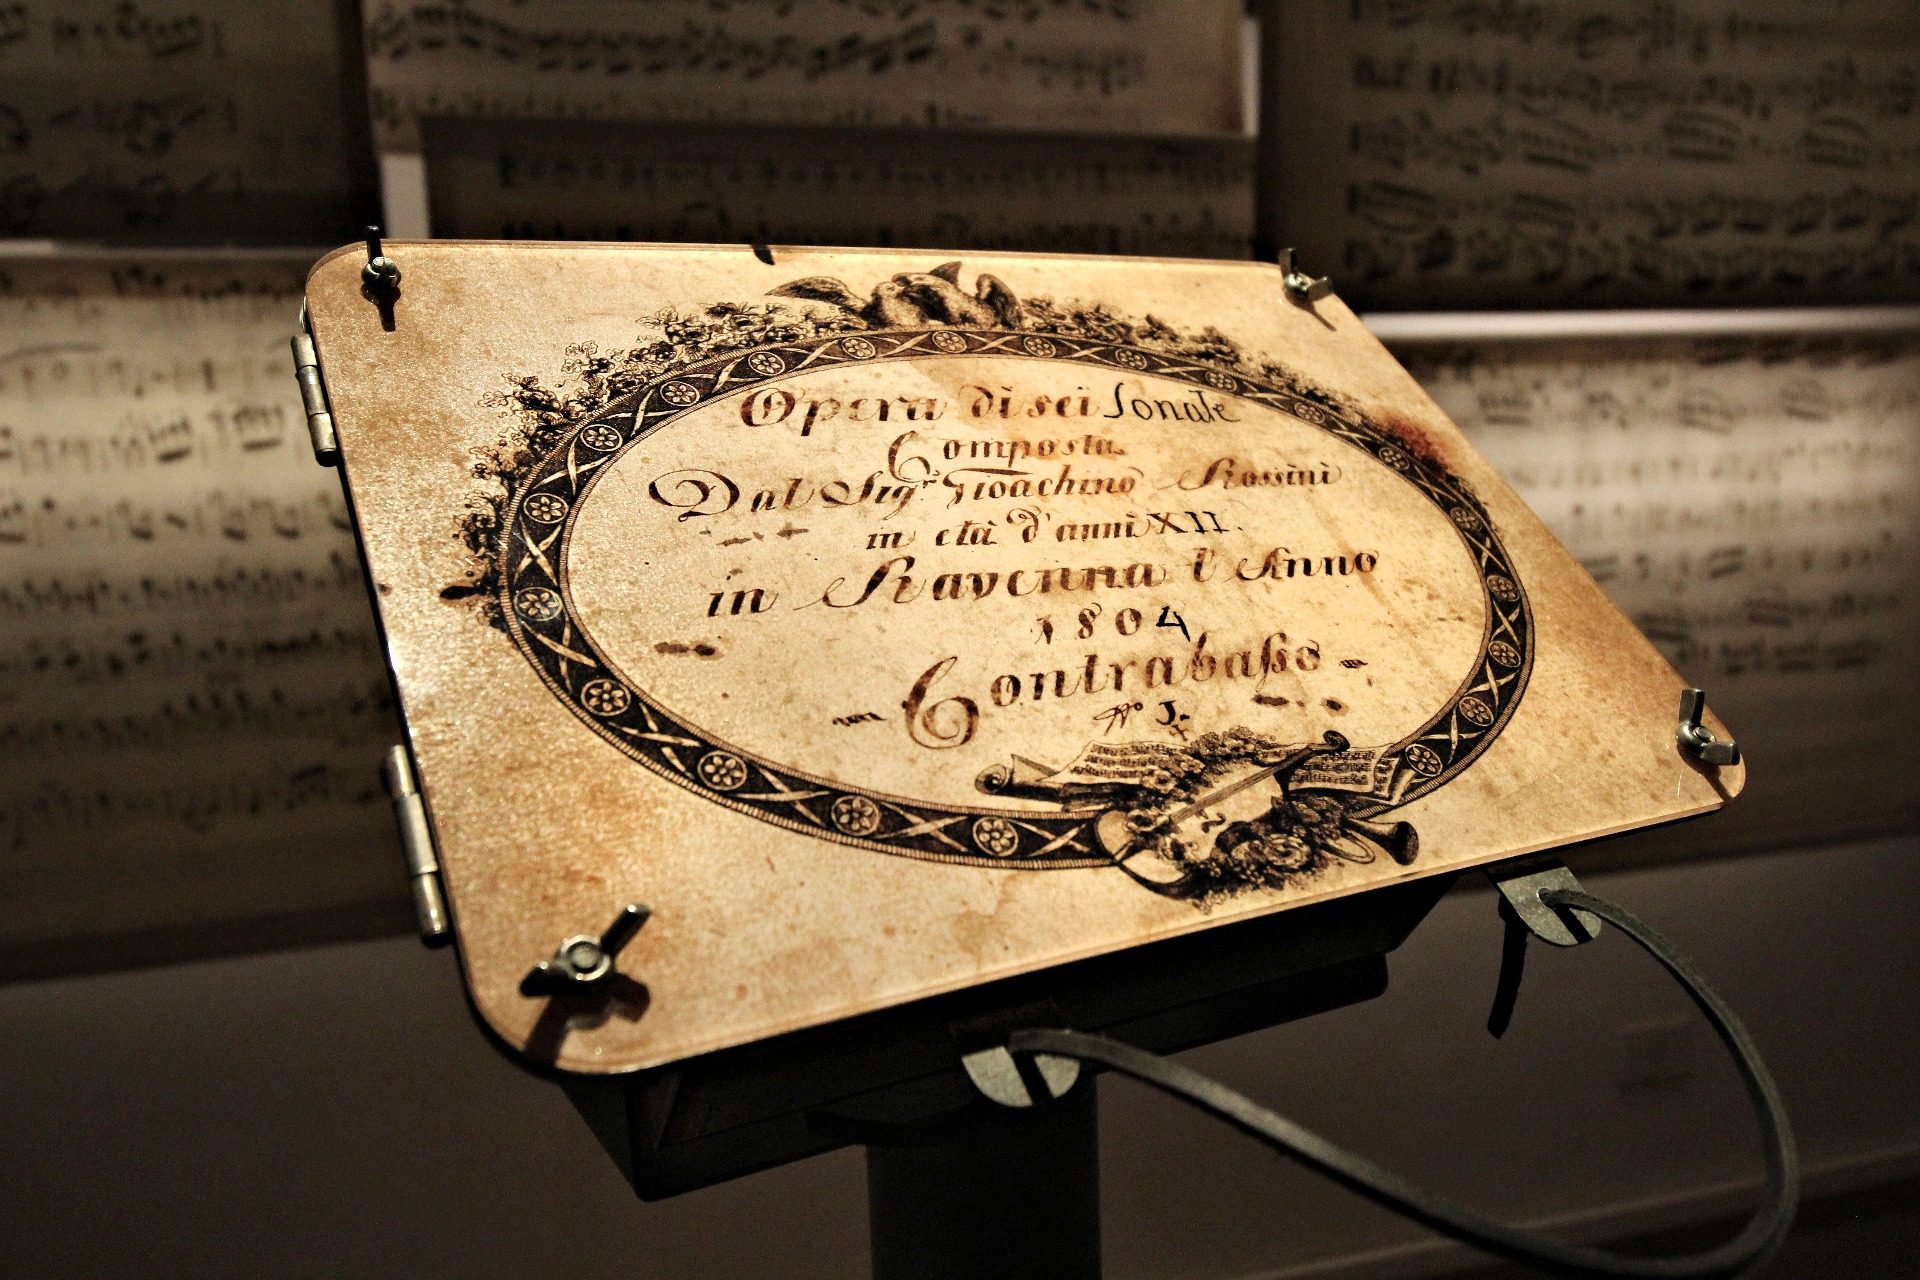 Opera di sei Sonate
Composta
Dal Sig.r Gioachino Rossini
in età d'anni XII.
in Ravenna l'Anno
1804
Contrabasso